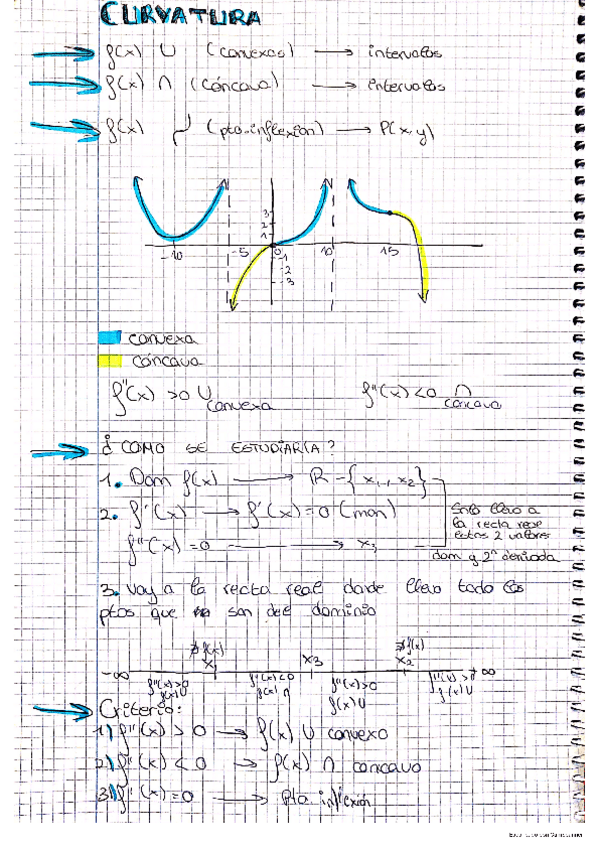 CURVATURA
f(x) ∪ (convexas) → intervalos
f(x) ∩ (cóncava) → intervalos
f(x) (pto inflexion) → P(x,y)
3
2
1
-10 -5 0 10 15
-1
-2
-3
convexa
cóncava
f''(x) >0 ∪ convexa f''(x) <0 ∩ cóncava
¿COMO SE ESTUDIARÍA?
1. Dom f(x) → R - {x₁, x₂}
2. f'(x) → f'(x)=0 (mon)
f''(x)=0 → x₃
Solo llevo a
la recta real
estos 2 valores
dom y 2ª derivada
3. Voy a la recta real donde llevo todo los
ptos que no son del dominio
∄f(x) ∄f(x)
x₁ x₃ x₂
-∞ +∞
f''(x)>0 f''(x)<0 f''(x)>0 f''(x)>0
f(x)∪ f(x)∩ f(x)∪ f(x)∪
Criterio:
1) f''(x) > 0 → f(x) ∪ convexo
2) f''(x) < 0 → f(x) ∩ concavo
3) f''(x)=0 → Pto. inflexión